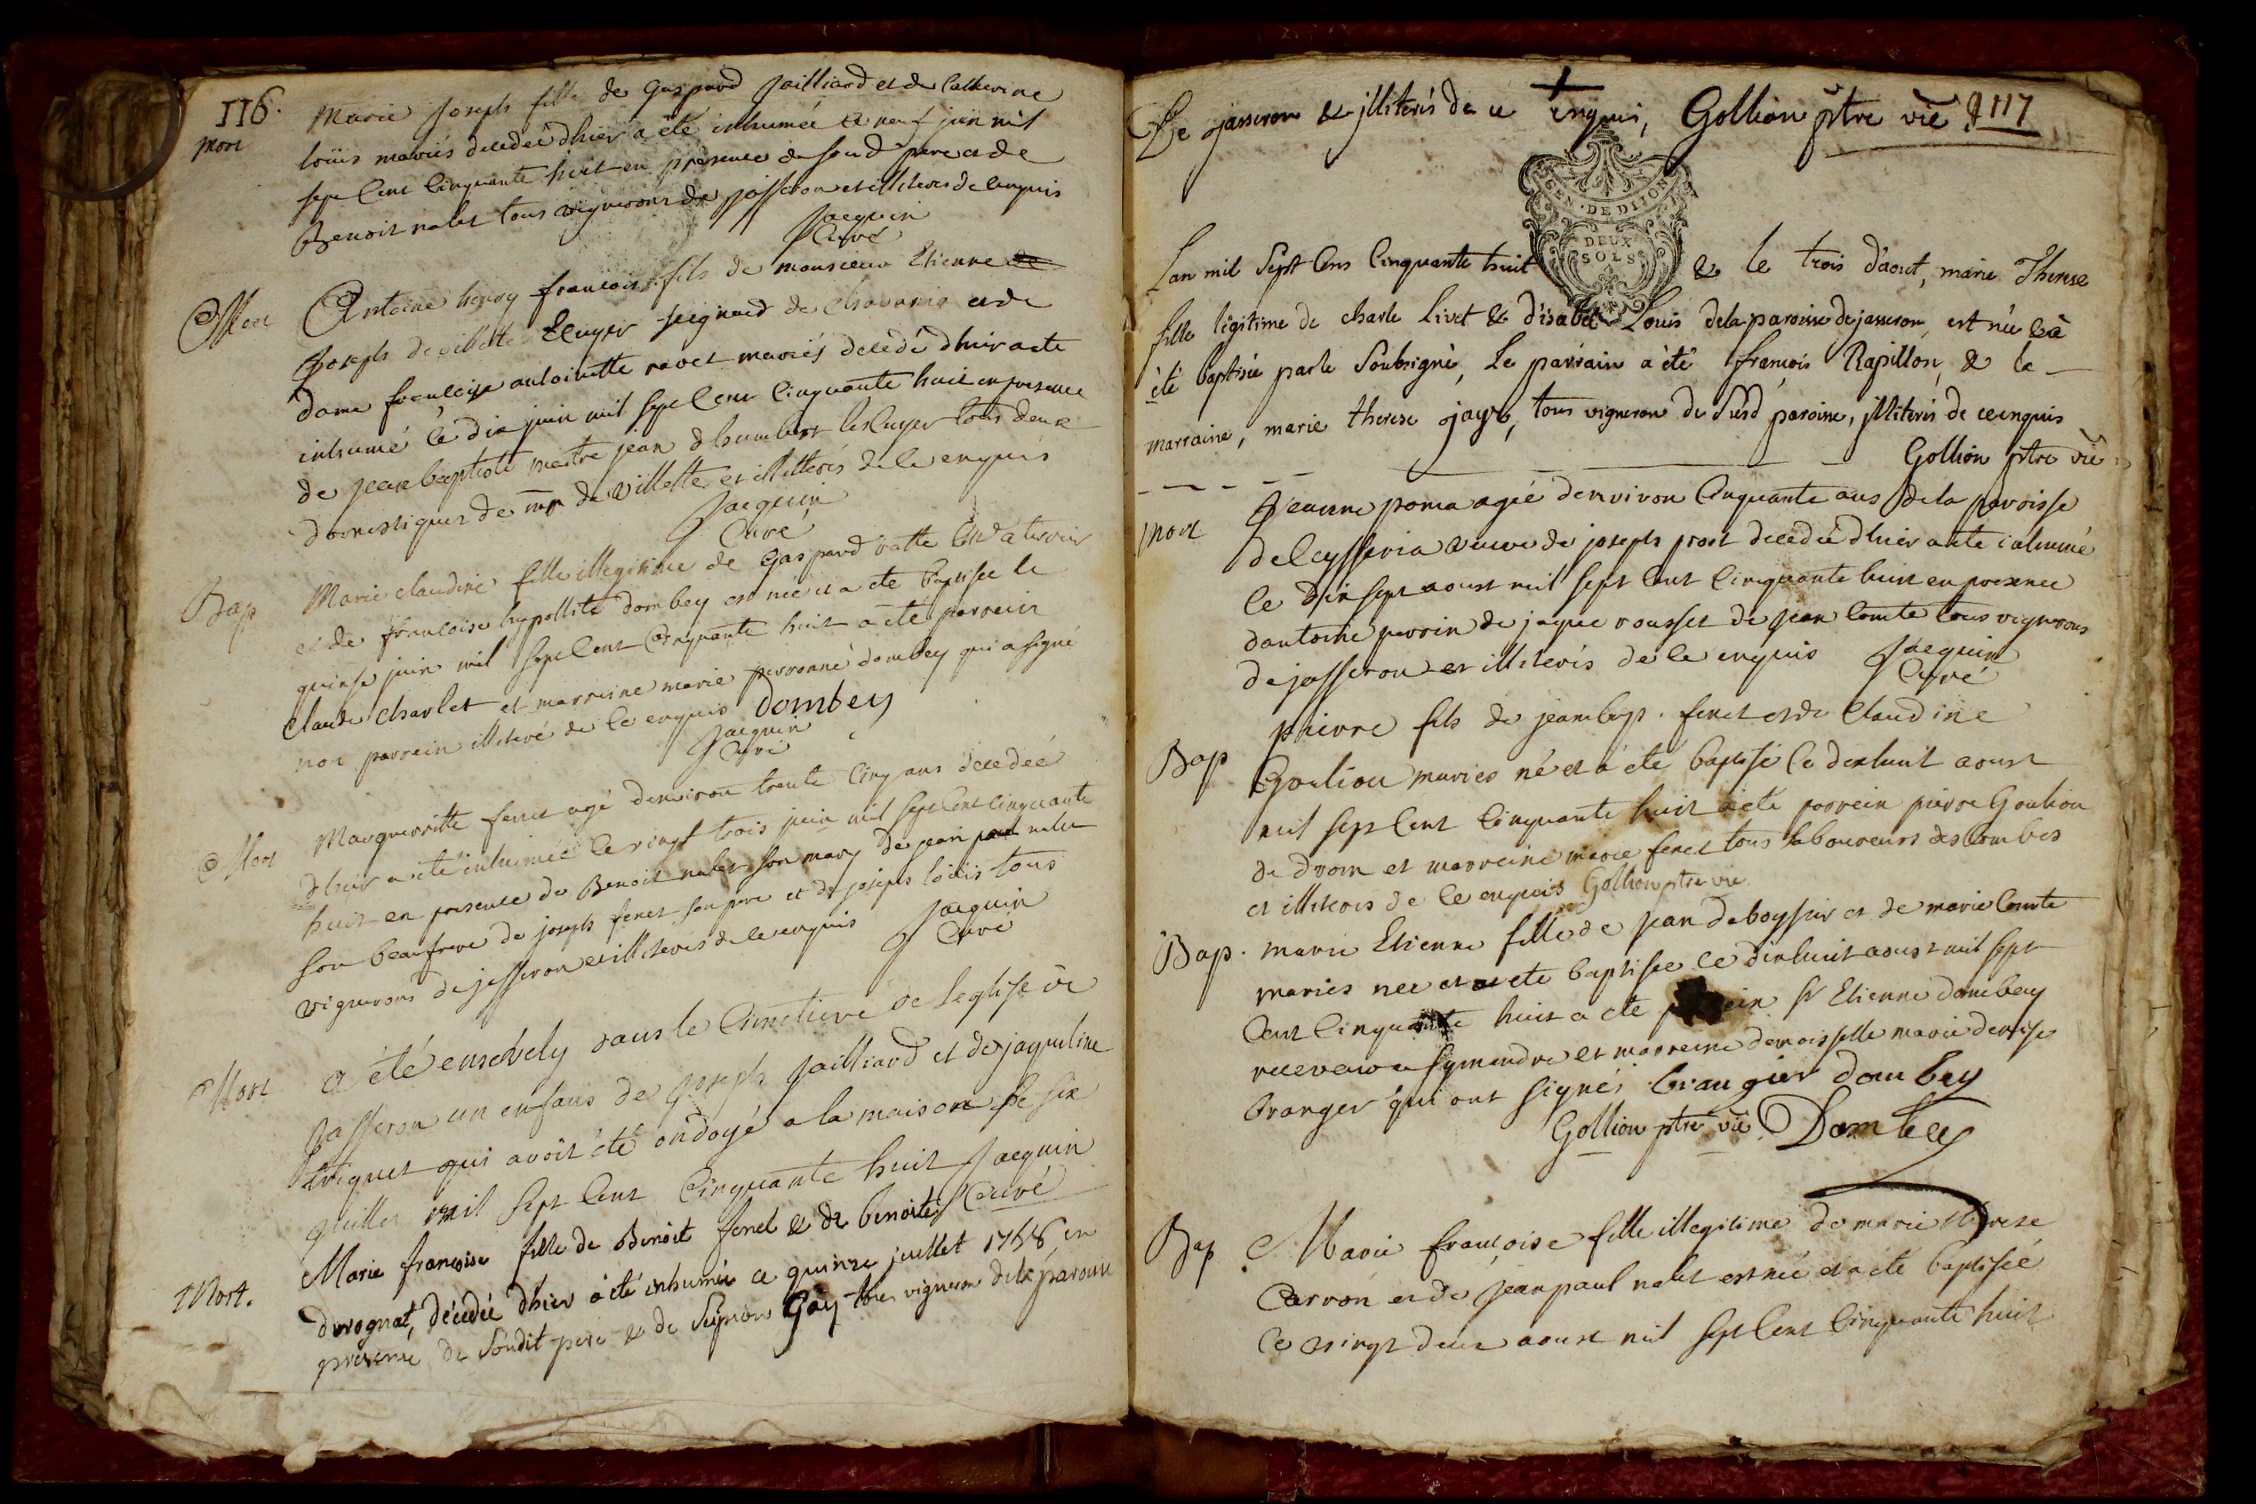 116.
mort
Marie Joseph fille de Gaspard Jailliard et de Catherine
loüis mariés decedée dhier a été inhumée ce neuf juin mil
sept Cent Cinquante huit en presence de son d pere et de
Benoit nalet tous vignerons de jasseron et illiterés de ce enquis
Jacquin
Curé
Mort
Antoine henry francois fils de monsieur Etienne
Joseph de villette Ecuyer seigneur de chavannes et de
dame francoise antoinette ravet mariés decedé dhier a ete
inhumé ce dix juin mil sept Cent Cinquante huit en presence
de jean baptiste mestre jean dhumbert lecuyer tous deux
domestiques de mr de villette et illitterés de ce enquis
Jacquin
Curé
Bap
Marie claudine fille illegitime de Gaspard ratte
et de francoise hypollite dombey est née et a eté baptisée le
quinse juin mil sept Cent Cinquante huit a eté parrein
Claude Charlet et marreine marie perronne dombey qui a signé
non parrein illiteré de ce enquis dombey
Jacquin
Curé
Mort
Margueritte feret agé denviron trente Cinq ans decedeé
dhier a eté inhumée ce vingt trois juin mil sept Cent Cinquante
huit en presence de Benoit nalet son mary de jean paul nalet
son beaufrere de joseph feret son pere et de joseph loüis tous
vignerons de jasseron et illiterés de ce enquis Jacquin
Curé
Mort
a été ensevely dans le Cimetiere de leglise de
Jasseron un enfans de Joseph Jailliard et de jaqueline
triquet qui avoit été ondoyé a la maison ce six
Juillet mil sept Cent Cinquante huit Jacquin
Curé
Mort.
Marie françoise fille de Benoit feret & de benoite
durognat, décédée dhier a été inhumée ce quinze juillet 1758 en
presence de Sondit pere & de Siprien Gay tous vignerons de la paroisse
De jasseron & jlliterés de ce enquis, Gollion ptre vic̃ 117
GEN. DE DIJON
DEUX
SOLS
Lan mil Sept Cens Cinquante huit & le trois d'aout, marie Therese
fille légitime de charle Livet & d'isabel Louis dela paroisse de jasseron est née & a
été baptisée par le Soubsigné, Le parrain a été francois Rapillon, & la
marraine, marie therese jayr, tous vigneron de Susd paroisse, jlliterés de ce enquis
Gollion ptre vic̃
mort
Jeanne poma agée denviron Cinquante ans de la paroisse
de Ceysseria veuve de joseph prost decedée dhier a ete inhumé
ce dix sept aoust mil sept Cent Cinquante huit en presence
dantoine perrin de jaque rousset de jean Comte tous vignerons
de jasseron et illiterés de ce enquis Jacquin
Curé
Bap
pierre fils de jean bap. feret et de Claudine
Goulion mariés né et a eté baptisé le dixhuit aoust
mil sept Cent Cinquante huit a eté parrein pierre Goulion
de drom et marreine marie feret tous laboureurs des Combes
et illiterés de ce enquis Gollion ptre vic
Bap.
marie Etienne fille de jean deboyssir et de marie Comte
mariés née et a ete baptisée ce dixhuit aoust mil sept
Cent Cinquante huit a eté parrein Sr Etienne dombey
receveur a symandre et marreine demoisselle marie denise
branger qui ont signés brangier dombey
Gollion ptre vic̃ Dombey
Bap
Marie françoise fille illegitime de marie therese
Carron et de jean paul nalet est née et a eté baptisée
ce vingt deux aoust mil sept Cent Cinquante huit